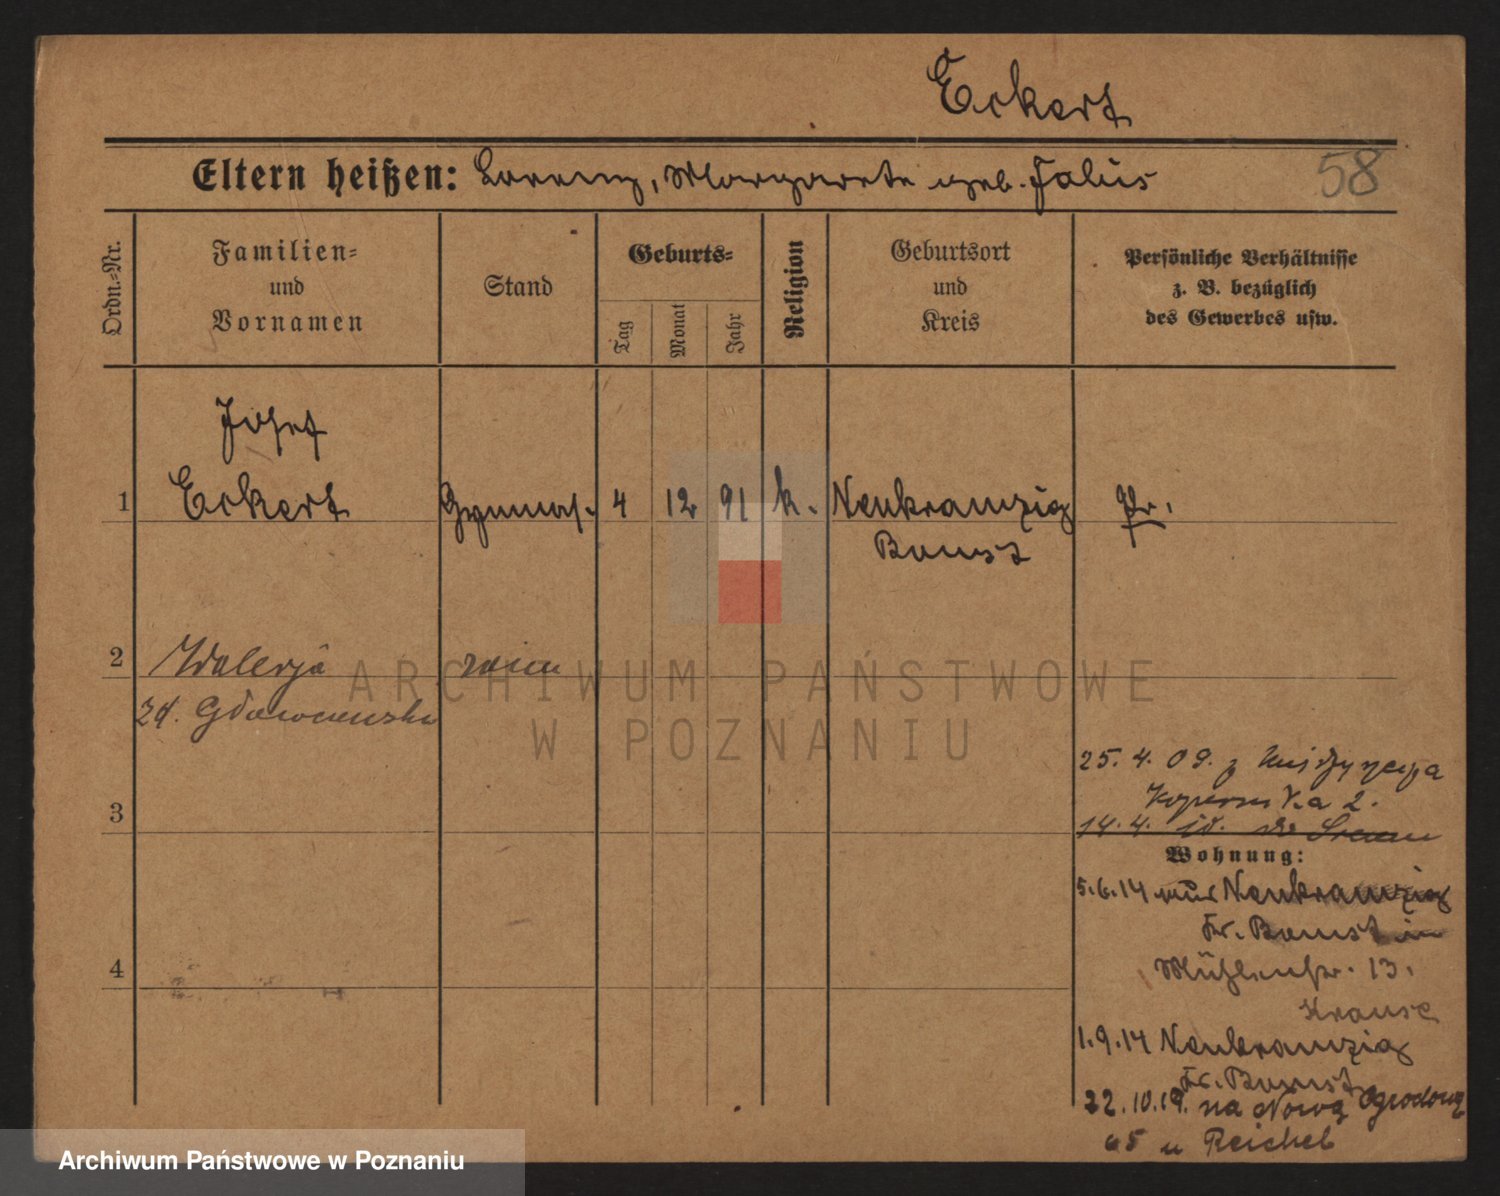 Eckert
Eltern heißen: Lorenz, Margarete geb. Fabis
58
Ordn.-Nr.
Familien- und Vornamen
Stand
Geburts-
Tag
Monat
Jahr
Religion
Geburtsort und Kreis
Persönliche Verhältnisse
z. B. bezüglich
des Gewerbes usw.
Josef
1 Eckert Gymnas. 4 12 91 k. Neukramzig Pr.
Bomst
2 Walerja
zd.
25. 4. 09. z
2.
3
14. 4. do
Wohnung:
5.6.14 aus Neukramzig
Kr. Bomst in
4
Mühlenstr. 13.
Krause
1.9.14 Neukramzig
Kr. Bomst
22.10.19. na Nową Ogrodową
65 u Reichelt
ARCHIWUM PAŃSTWOWE
W POZNANIU
Archiwum Państwowe w Poznaniu